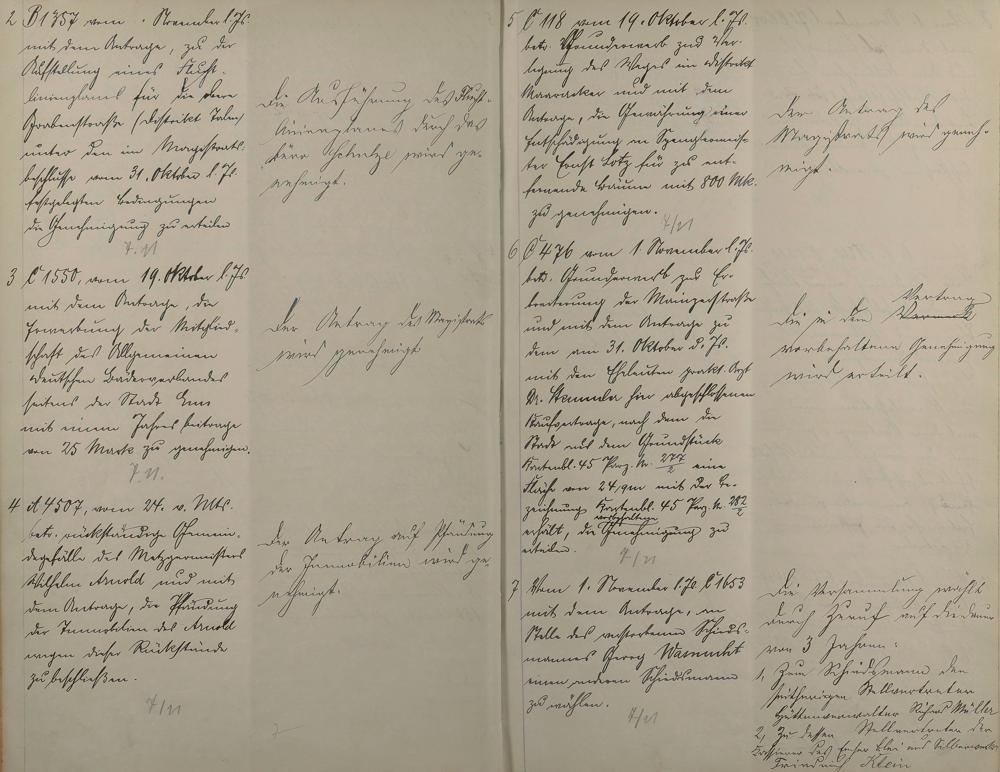 2 B 1357 vom . November l. Js.
mit dem Antrage, zu der
Aufstellung eines Flucht-
linienplanes für die obere
Grabenstraße (Distrikt Talen)
unter den im Magistrats-
beschlusse vom 31. Oktober l. Js.
festgelegten Bedingungen
die Genehmigung zu erteilen
7.11
Die Ausführung des Flucht-
linienplanes durch das
büro wird ge-
nehmigt.
3 C 1550, vom 19. Oktober l. Js
mit dem Antrage, die
Erwerbung der Mitglied-
schaft des Allgemeinen
deutschen Bäderverbandes
seitens der Stadt Ems
mit einem Jahresbeitrage
von 25 Mark zu genehmigen.
7.11.
Der Antrag des Magistrats
wird genehmigt
4 A 4507, vom 24. v. Mts.
betr. rückständige Gemein-
degefälle des Metzgermeisters
Wilhelm Arnold und mit
dem Antrage, die Pfändung
der Immobilien des Arnold
wegen dieser Rückstände
zu beschließen.
7/11
Der Antrag auf Pfändung
der Immobilien wird ge-
nehmigt.
5 C 118 vom 19. Oktober l. Js.
betr. Grunderwerb zur Ver-
legung des Weges im Distrikt
und mit dem
Antrage, die Gewährung einer
Entschädigung an Spenglermeis-
ter Ernst Lotz für zu ent-
fernende Bäume mit 800 Mk.
zu genehmigen.
7/11
Der Antrag des
Magistrats wird geneh-
migt.
6 C 476 vom 1. November l. Js.
betr. Grunderwerb zur Er-
breiterung der Mainzerstraße
und mit dem Antrage zu
dem am 31. Oktober d. Js.
mit den Eheleuten prakt. Arzt
Dr. Stemmler hier abgeschlossenen
Kaufvertrage, nach dem die
Stadt aus dem Grundstück
Kartenbl. 45 Parz. Nr. 277/2 eine
Fläche von 24 qm mit der Be-
zeichnung Kartenbl. 45 Parz. Nr. 282/2
vorbehaltene
erhält, die Genehmigung zu
erteilen.
7/11
Vertrag
Die in dem
vorbehaltene Genehmigung
wird erteilt.
7 Vom 1. November l. Js. C 1653
mit dem Antrage, an
Stelle des verstorbenen Schieds-
mannes Georg
einen anderen Schiedsmann
zu wählen.
7/11
Die Versammlung wählt
durch Zuruf auf die Dauer
von 3 Jahren:
1, Zum Schiedsmann den
seitherigen Stellvertreter
Hüttenverwalter Richard Müller
2, Zu dessen Stellvertreter den
Kassierer des Emser Blei und Silberwerks
Friedrich Klein